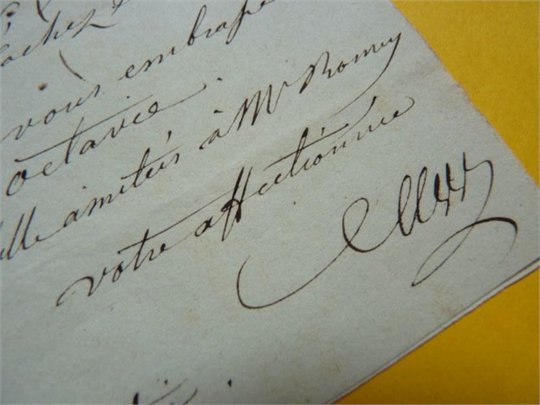 vous embrasse
octavie.
mille amitiés à Mr Romey
votre affectionnée